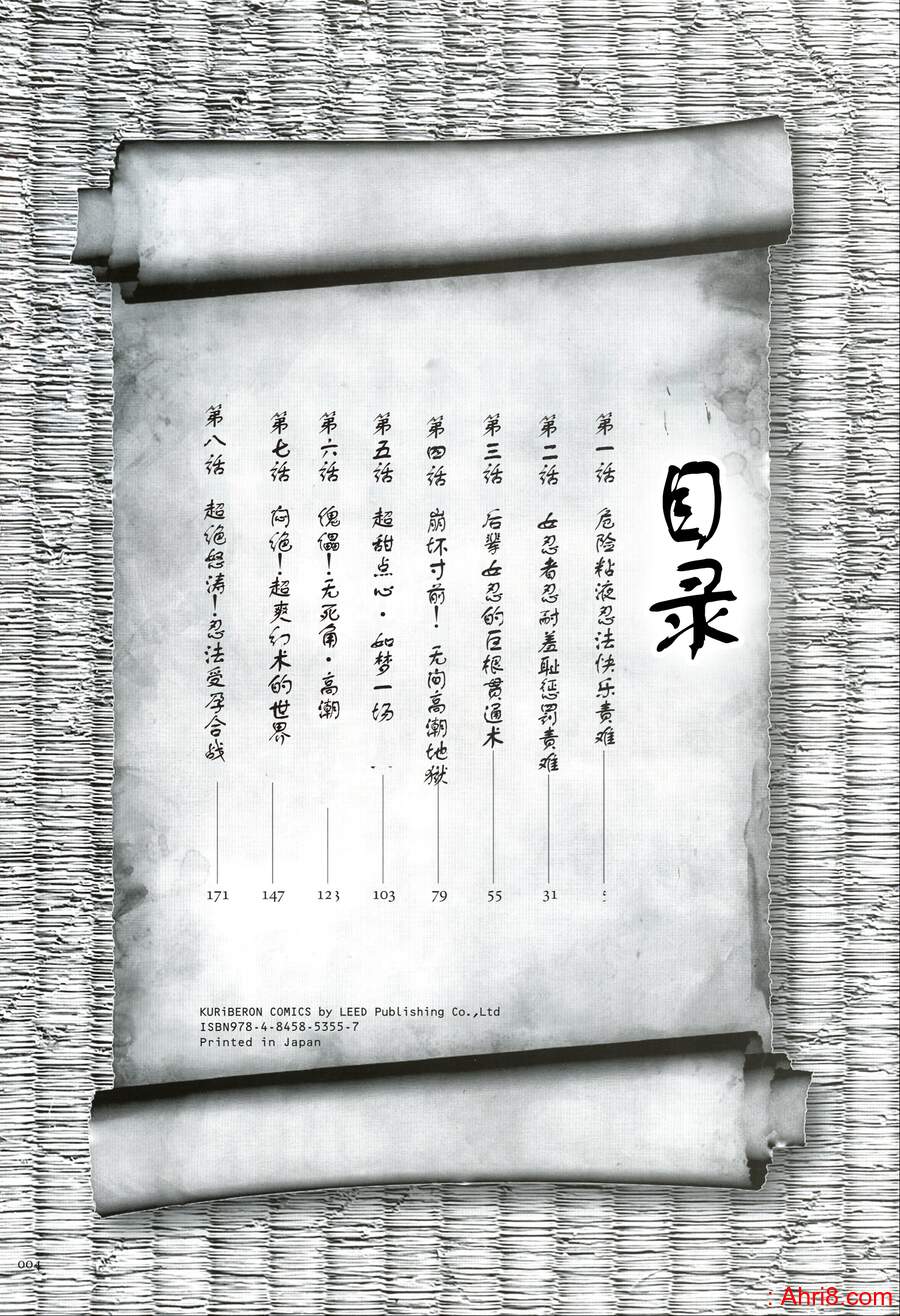 目录
第一话 危险粘液忍法快乐责难
5
第二话 女忍者忍耐羞耻惩罚责难
31
第三话 后辈女忍的巨根贯通术
55
第四话 崩坏寸前！无间高潮地狱
79
第五话 超甜点心・如梦一场
103
第六话 傀儡！无死角・高潮
123
第七话 闷绝！超爽幻术的世界
147
第八话 超绝怒涛！忍法受孕合战
171
KURiBERON COMICS by LEED Publishing Co.,Ltd
ISBN978-4-8458-5355-7
Printed in Japan
004
: Ahri8.com